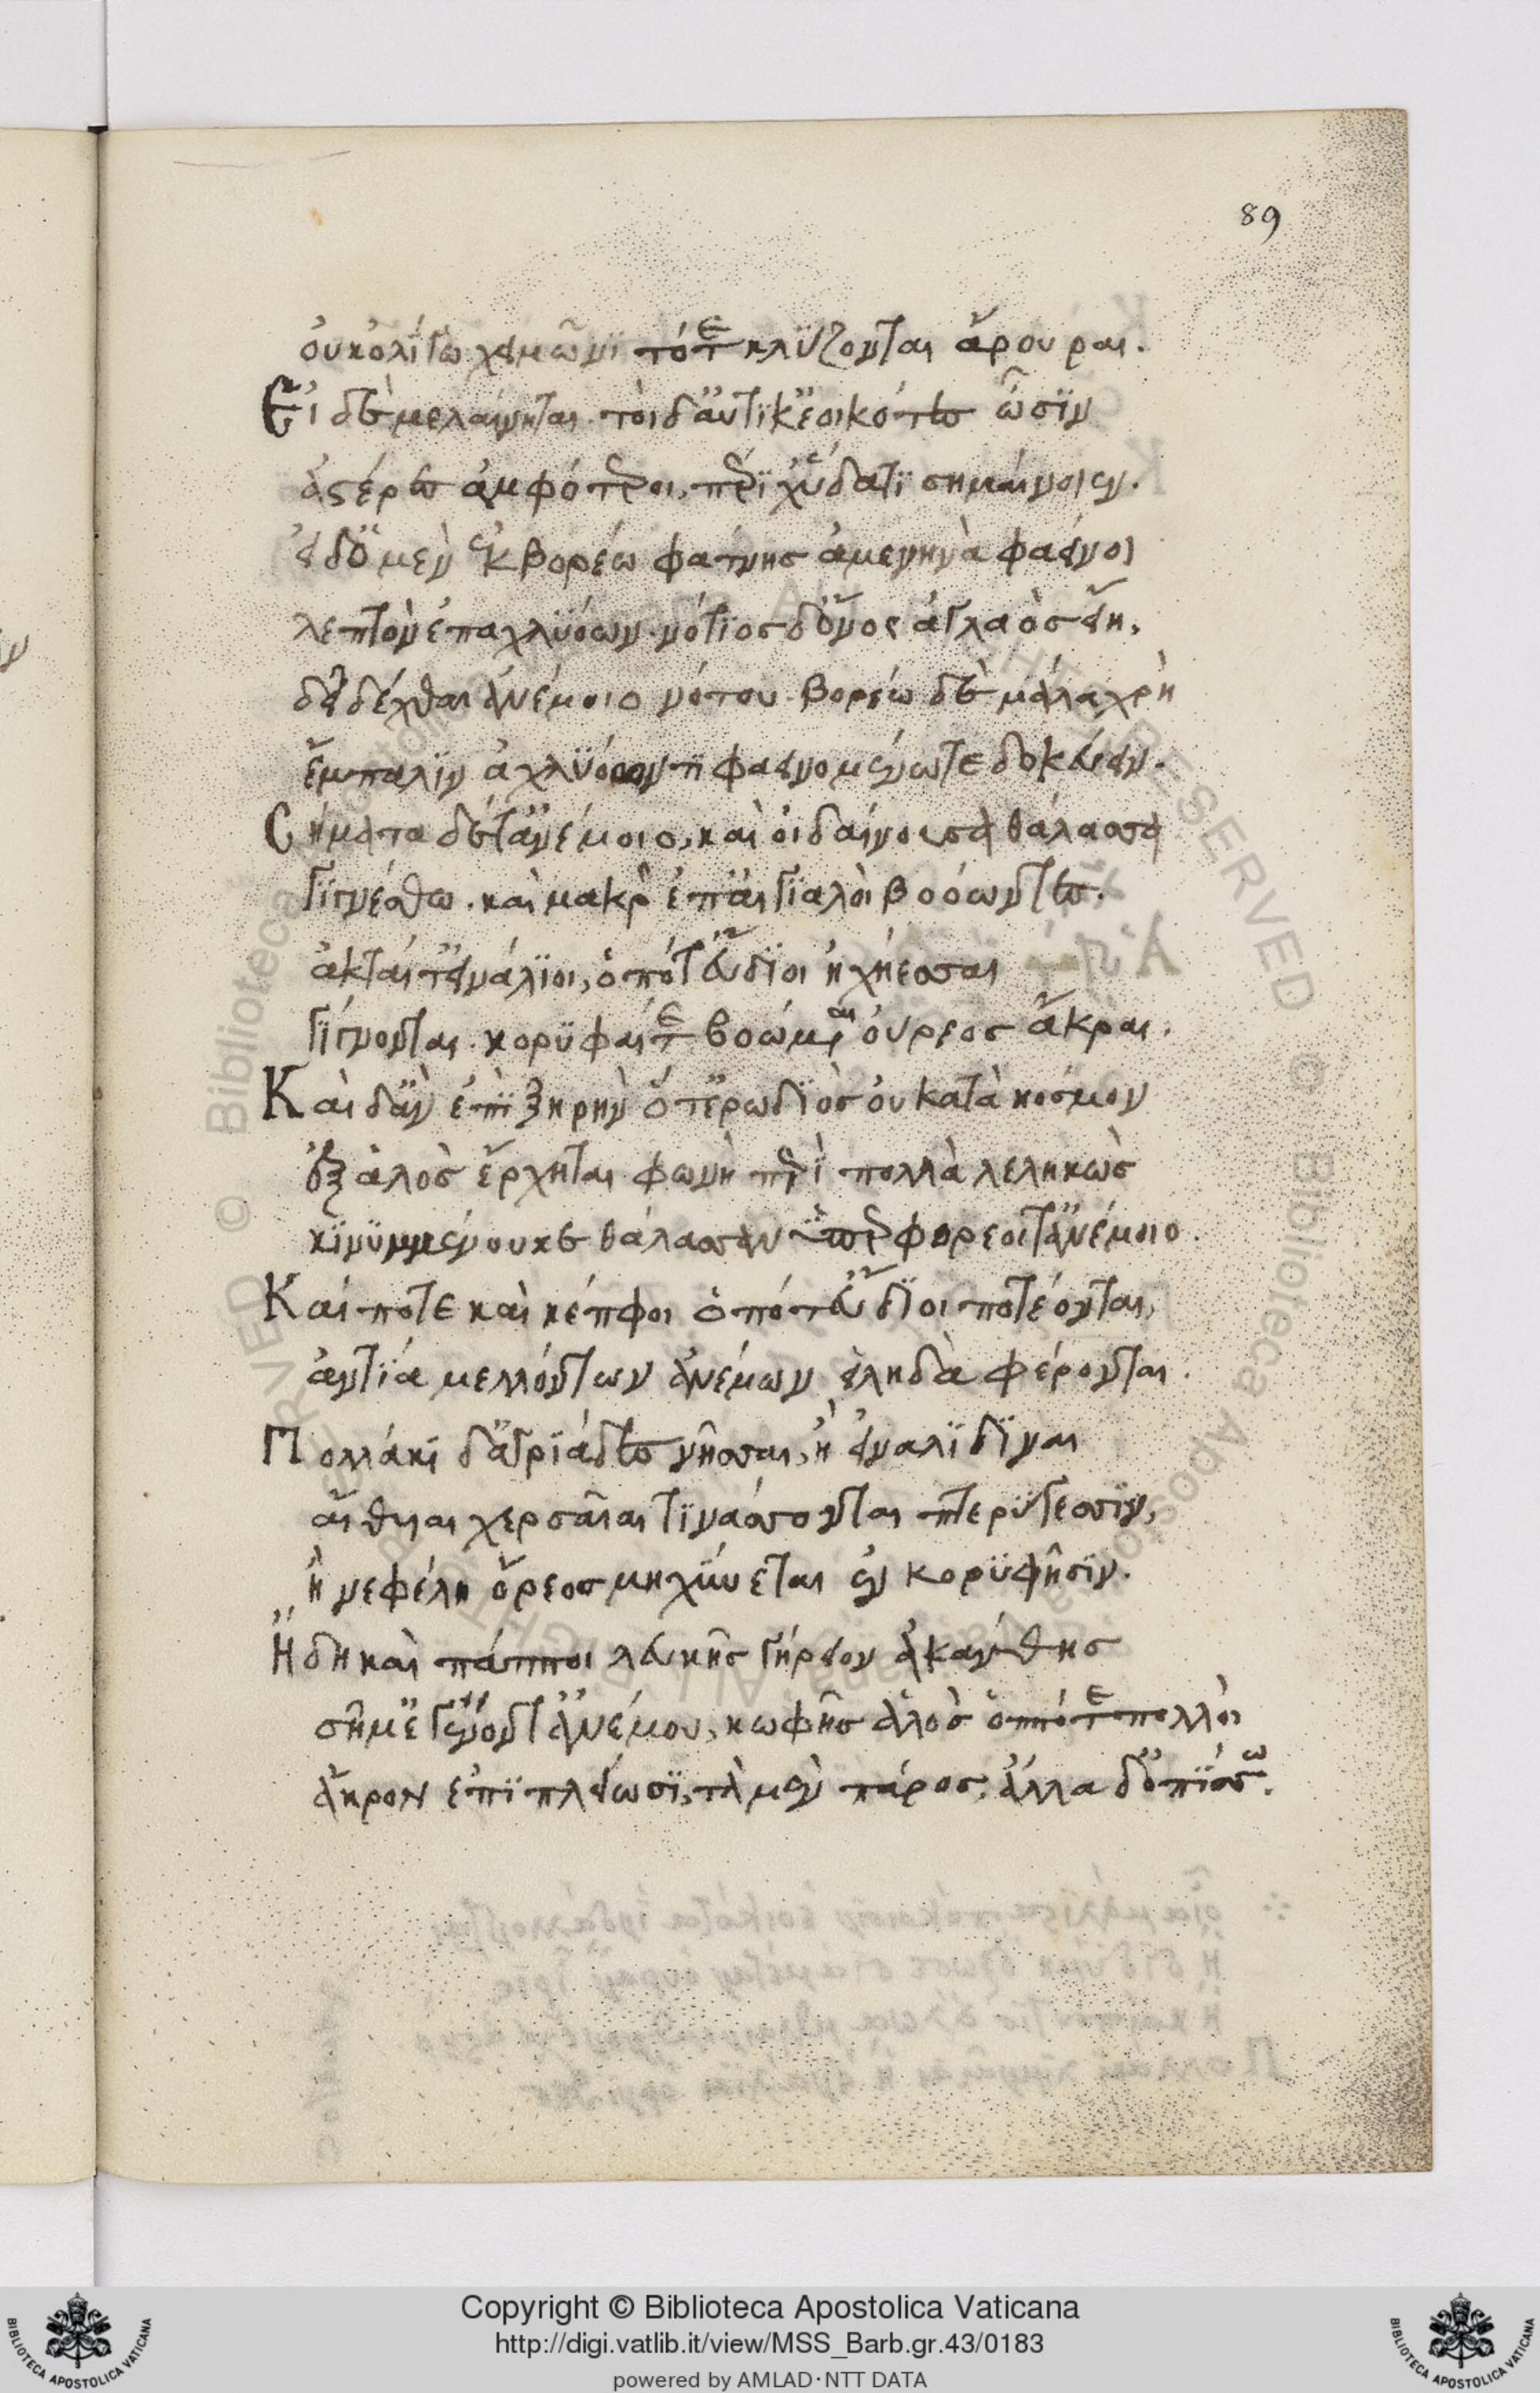 89
οὐκ ὀλίγω χειμῶνι τότε κλύζονται ἄρουραι.
Εἰ δὲ μελαίνηται. τοὶ δ' αὐτίκ' ἐοικότες ὦσιν
ἀστέρες ἀμφότεροι, περί χ' ὕδατι σημαίνοιεν.
εἰ δ' ὁ μὲν ἐκ βορέω φάτνης ἀμενηνὰ φαείνοι
λεπτὸν ἐπαχλύόων. νότιος δ' ὄνος ἀγλαὸς εἴη,
δειδέχθαι ἀνέμοιο νότου. βορέω δὲ μάλα χρὴ
ἔμπαλιν ἀχλυόεντι φαεινομένω τε δοκεύειν.
Σήματα δέ τ' ἀνέμοιο, καὶ οἰδαίνουσα θάλασσα
γιγνέσθω. καὶ μακρὸ ἐπ' αἰγιαλοὶ βοόωντες.
ἀκταί τ' εἰνάλιοι, ὁπότ' εὔδιοι ἠχήεσσαι
γίγνονται. κορυφαί τε βοώμεναι οὔρεος ἄκραι.
Καὶ δ' ἂν ἐπὶ ξηρὴν ὅτ' ἐρωδιὸς οὐ κατὰ κόσμον
ἐξ ἁλὸς ἔρχηται φωνῆ περὶ πολλὰ λεληκὼς
κινυμμένου κε θάλασσαν ὕπερ φορέοιτ' ἀνέμοιο.
Καί ποτε καὶ κέπφοι ὁπότ' εὔδιοι ποτέονται,
ἀντία μελλόντων ἀνέμων εἰληδὰ φέρονται.
Πολλάκι δ' ἀγριάδες νῆσσαι, ἢ εἰναλίδιναι
αἴθυιαι χερσαῖαι τινάσσονται πτερύγεσσιν,
ἢ νεφέλη ὄρεος μηκύνεται ἐν κορυφῆσιν.
Ἤδη καὶ πάπποι λευκῆς γήρειον ἀκάνθης
σῆμ' ἐγένοντ' ἀνέμου, κωφῆς ἁλὸς ὁππότε πολλοὶ
ἄκρον ἐπιπλείωσι, τὰ μὲν πάρος, ἄλλα δ' ὀπίσσω.
Copyright © Biblioteca Apostolica Vaticana
http://digi.vatlib.it/view/MSS_Barb.gr.43/0183
powered by AMLAD·NTT DATA